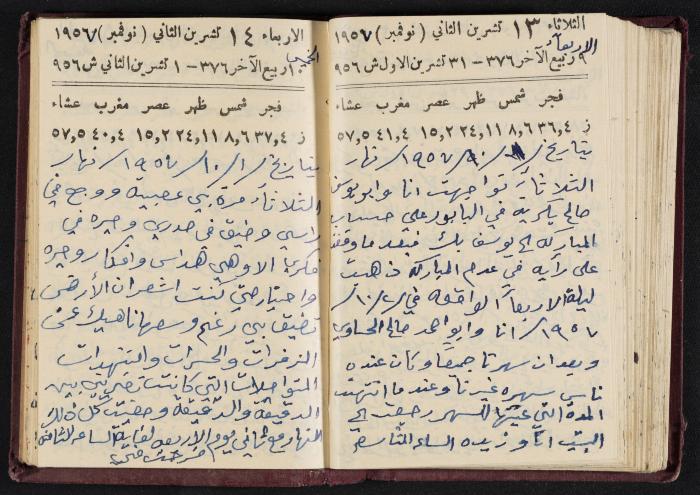 الثلاثاء ١٣ تشرين الثاني ( نوفمبر ) ١٩٥٧
الاربعاء
٩ ربيع الآخر ٣٧٦ – ٣١ تشرين الاول ش ٩٥٦
فجر شمس ظهر عصر مغرب عشاء
ز ٣٦,٤ ٨,٦ ٢٤,١١ ١٥,٢ ٤١,٤ ٥٧,٥
بتاريخ /١/ ١٠/ ١٩٥٧/ نهار
الثلاثاء تواجهت انا وابو يوسف
صالح في البابور على حساب
المباركه الى يوسف بك فبعد ما وقف
على رأيه في عدم المباركه ذهبت
ليلة الاربعاء الواقعه في /٢/ ١٠/
١٩٥٧/ انا وابو احمد صالح
وبعد ان سهرنا جميعا وكان عنده
ناس سهره غيرنا وعندما انتهت
المدة التي للسهر رجعت الى
البيت انا وزيده الساعه التاسعه
الاربعاء ١٤ تشرين الثاني ( نوفمبر ) ١٩٥٧
الخميس
١٠ ربيع الآخر ٣٧٦ – ١ تشرين الثاني ش ٩٥٦
فجر شمس ظهر عصر مغرب عشاء
ز ٣٧,٤ ٨,٦ ٢٤,١١ ١٥,٢ ٤٠,٤ ٥٧,٥
بتاريخ /١/ ١٠/ ١٩٥٧/ نهار
الثلاثاء مرة بي عصبية ووجع في
راسي وضيق في صدري وحيره في
فكري الا وهي هداس وافكار وحيره
واحتيار حتى كنت اشعر ان الأرض
تضيق بي رغم وسعها ناهيك عن
الزفرات والحسرات والتنهدات
المتواصلات التي كانت تضربني بين
الدقيقة والدقيقة وضليت كل ذلك
النهار مع ثاني يوم الاربعه لغاية الساعه الثامنه